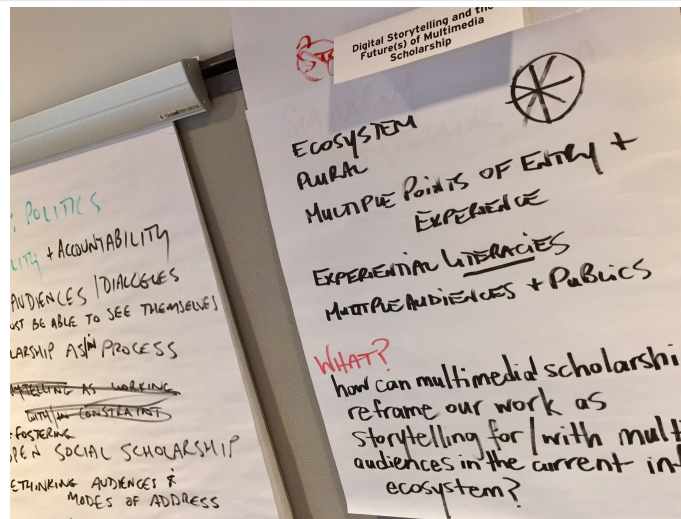 Digital Storytelling and the
Future(s) of Multimedia
Scholarship
ECOSYSTEM
PLURAL
MULTIPLE POINTS OF ENTRY +
EXPERIENCE
EXPERIENTIAL LITERACIES
MULTIPLE AUDIENCES + PUBLICS
WHAT?
how can multimedia scholarshi
reframe our work as
storytelling for/with mult
audiences in the current in
ecosystem?
: POLITICS
LITY + ACCOUNTABILITY
AUDIENCES / DIALOGUES
UST BE ABLE TO SEE THEMSELVES
LARSHIP AS/IN PROCESS
YTELLING AS WORKING
WITH/IN CONSTRAINT
+ FOSTERING
PEN SOCIAL SCHOLARSHIP
ETHINKING AUDIENCES &
MODES OF ADDRESS